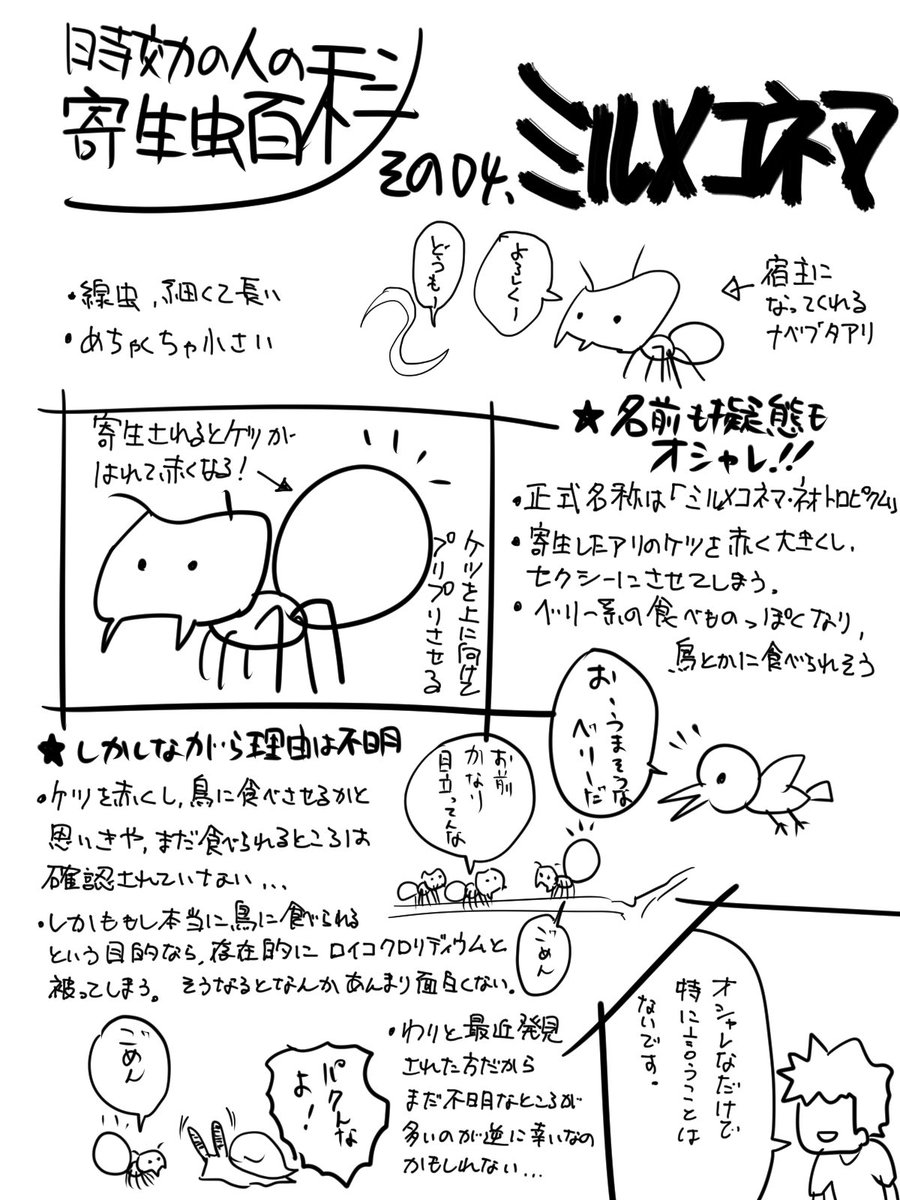 時效の人の
寄生虫百科
その04、ミルメコネマ
・線虫、細くて長い
・めちゃくちゃ小さい
どうもー
よろしくー
宿主に
なってくれる
ナベブタアリ
寄生されるとケツが
はれて赤くなる!
ケツを上に向けて
プリプリさせる
★名前も擬態も
オシャレ!!
・正式名称は「ミルメコネマ・ネオトロピクム」
・寄生したアリのケツを赤く大きくし、
セクシーにさせてしまう。
・ベリー系の食べものっぽくなり、
鳥とかに食べられそう
お、うまそうな
ベリーだ
★しかしながら理由は不明
・ケツを赤くし、鳥に食べさせるかと
思いきや、まだ食べられるところは
確認されていない...
・しかももし本当に鳥に食べられる
という目的なら、存在的にロイコクロリディウムと
被ってしまう。そうなるとなんかあんまり面白くない。
お前
かなり
目立ってんな
ごめん
ごめん
パクんな
よ!
・わりと最近発見
された方だから
まだ不明なところが
多いのが逆に幸いなの
かもしれない...
オシャレなだけで
特に言うことは
ないです。